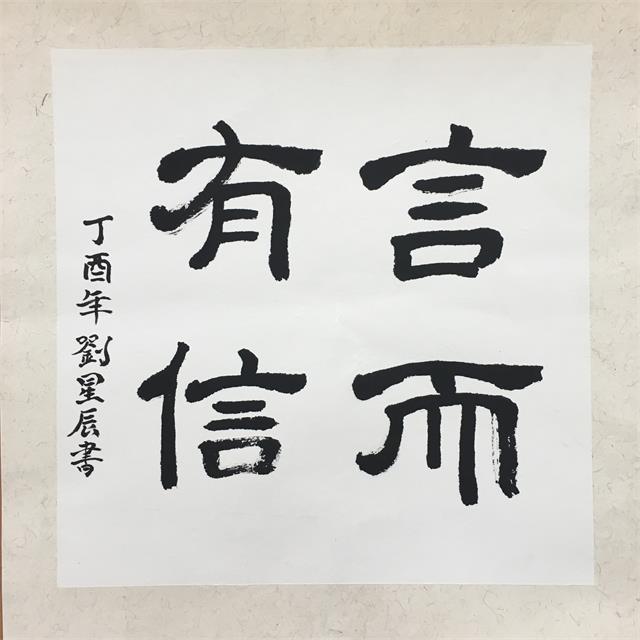 言而
有信
丁酉年劉星辰書